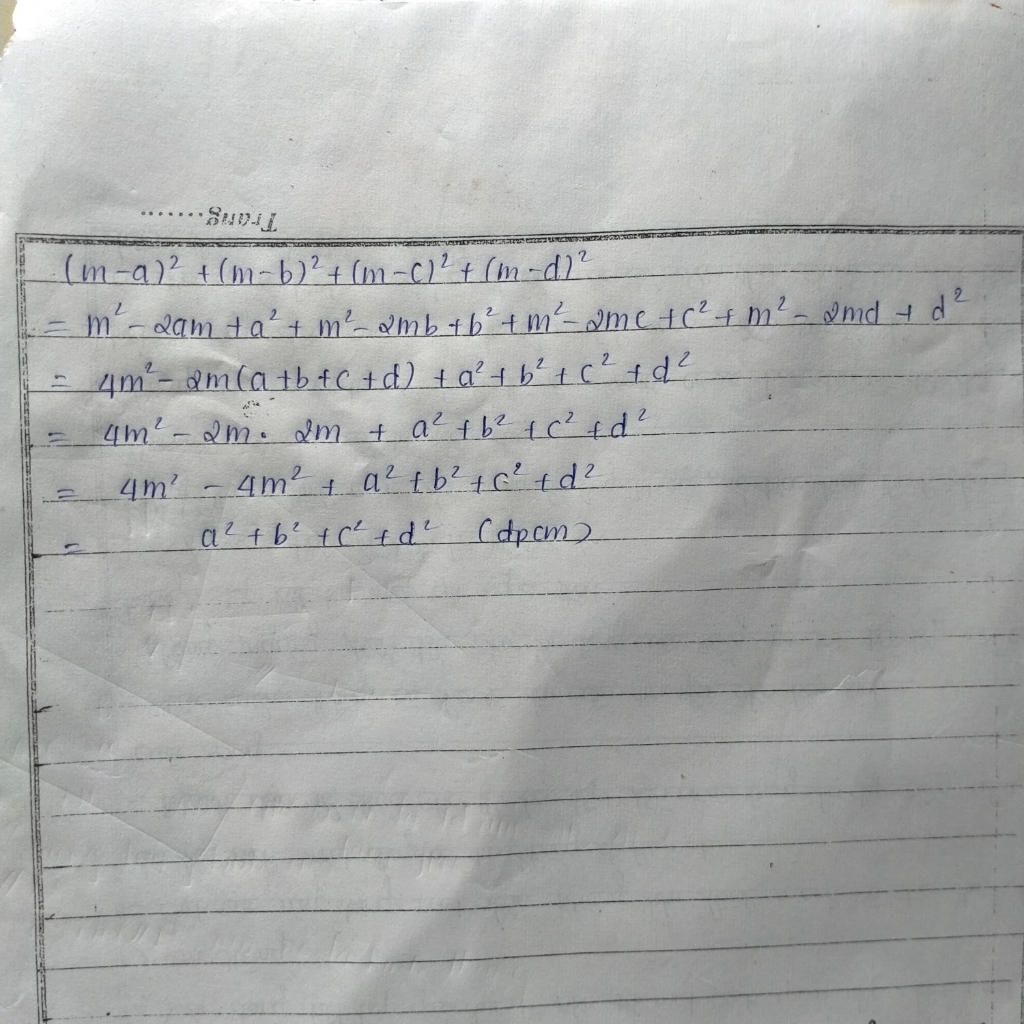 Trang........
(m-a)² + (m-b)² + (m-c)² + (m-d)²
= m² - 2am + a² + m² - 2mb + b² + m² - 2mc + c² + m² - 2md + d²
= 4m² - 2m(a+b+c+d) + a² + b² + c² + d²
= 4m² - 2m. 2m + a² + b² + c² + d²
= 4m² - 4m² + a² + b² + c² + d²
= a² + b² + c² + d² (dpcm)